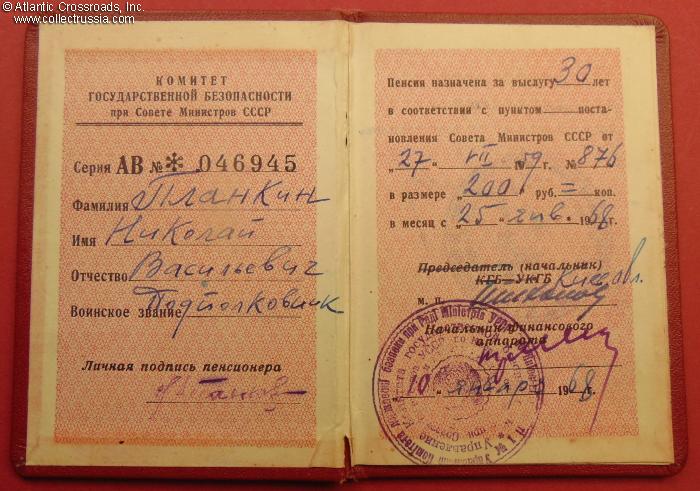 © Atlantic Crossroads, Inc.
www.collectrussia.com
КОМИТЕТ
ГОСУДАРСТВЕННОЙ БЕЗОПАСНОСТИ
при Совете Министров СССР
Серия АВ № * 046945
Фамилия Планкин
Имя Николай
Отчество Васильевич
Воинское звание Подполковник
Личная подпись пенсионера
Пенсия назначена за выслугу 30 лет
в соответствии с пунктом поста-
новления Совета Министров СССР от
„27“ VII 1959г. № 876
в размере 200 руб. = коп.
в месяц с „25“ янв 1968г.
Председатель (начальник)
КГБ—УКГБ
м. п.
Начальник финансового
аппарата
„10“ января 1968г.